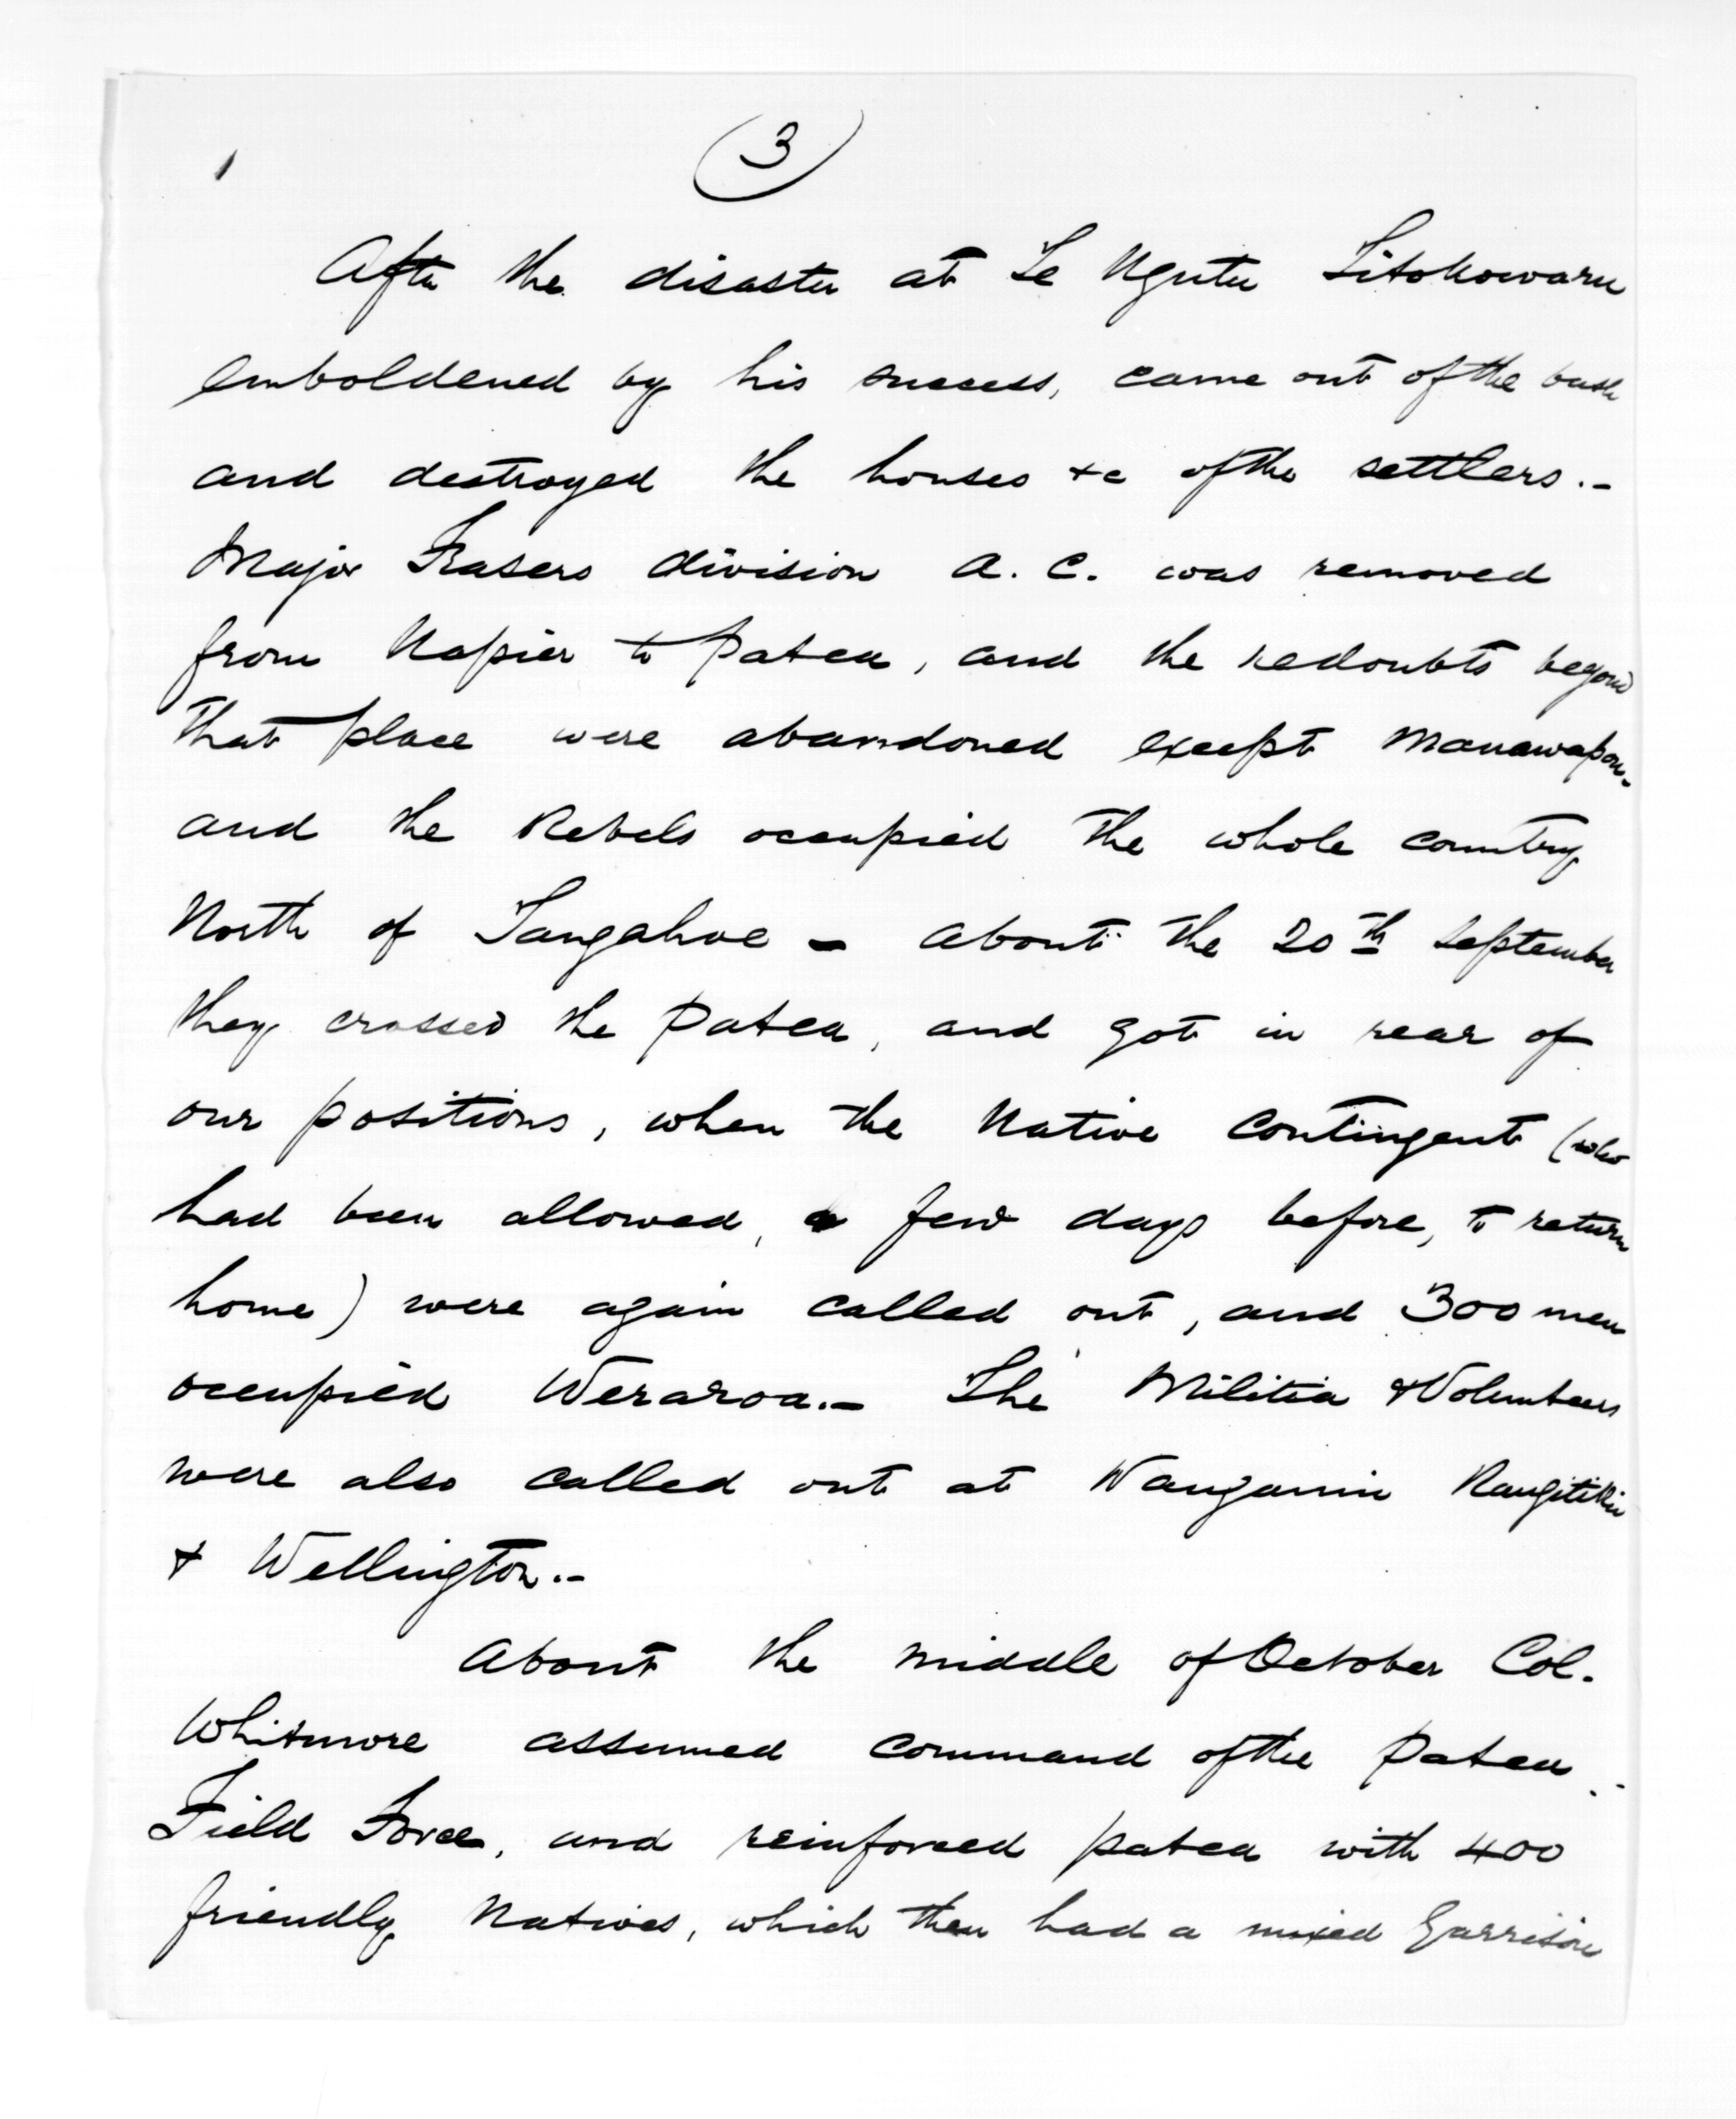 3
After the disaster at Te Ngutu Titokowaru
emboldened by his success, came out of the bush
and destroyed the houses &c of the settlers.-
Major Frasers division A. C. was removed
from Napier to Patea, and the redoubts beyond
that place were abandoned except Manawapou-
and the Rebels occupied the whole country
North of Tangahoe - about the 20th September
they crossed the Patea, and got in rear of
our positions, when the Native Contingent (who
had been allowed, a few days before, to return
home) were again called out, and 300 men
occupied Weraroa.- The Militia & Volunteers
were also called out at Wanganui Rangitikei
& Wellington.-
About the middle of October Col.
Whitmore assumed command of the Patea
Field Force, and reinforced Patea with 400
friendly Natives, which then had a mixed Garrison